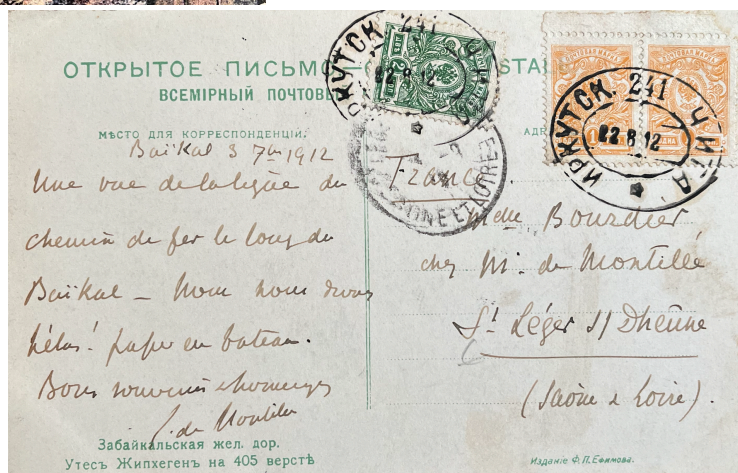 ОТКРЫТОЕ ПИСЬМО
ВСЕМІРНЫЙ ПОЧТОВЫ
МѢСТО ДЛЯ КОРРЕСПОНДЕНЦІИ.
АДР
ИРКУТСК. 241 ЧИТА
22 8 12
ИРКУТСК. 241 ЧИТА
22 8 12
SAONE ET LOIRE
Baïkal 3 7bre 1912
Une vue de la ligne du
chemin de fer le long du
Baïkal – Nous nous
hélas! en bateau.
Bons souvenirs hommages
de Montille
France
Melle Bourdier
chez M. de Montille
St Léger s/ Dheune
(Saône & Loire).
Забайкальская жел. дор.
Утесъ Жипхегенъ на 405 верстѣ
Изданіе Ф.П.Ефимова.